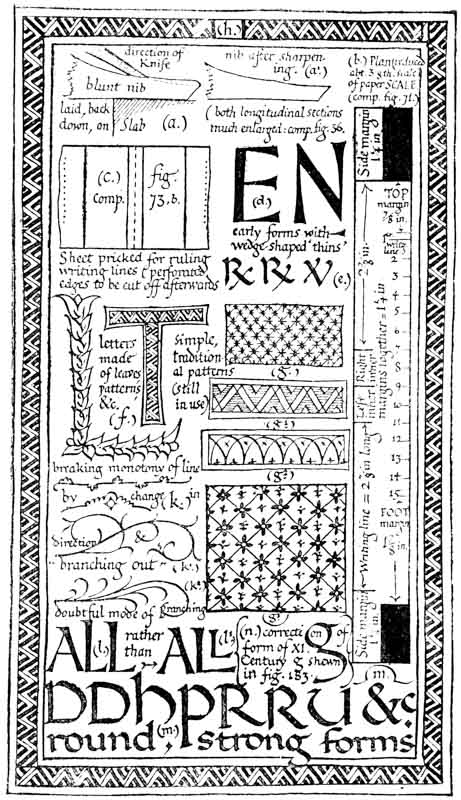 (h.)
direction of
Knife
blunt nib
laid, back
down, on Slab (a.)
nib after sharpen-
ing. (a¹.)
(both longitudinal sections
much enlarged: comp. fig. 56.
(b.) Plan reduced
abt. 3 8th. scale
of paper SCALE
(comp. fig. 71.)
(c.) fig.
comp. 73, b.
Sheet pricked for ruling
writing lines (perforated
edges to be cut off afterwards
EN
(d.)
early forms with
wedge shaped 'thins'
(e.)
LT
letters
made
of leaves
patterns
&c.
(f.)
simple,
tradition-
al patterns
(still
in use)
(g.)
(g¹.)
(g².)
(g³.)
breaking monotony of line
by change (k.) in
direction &
"branching out" (k¹.)
(k².)
doubtful mode of branching
ALL (l.) rather
than ALL (l¹.)
(n.) correction of
form of XI.
Century g shown
in fig. 183.
g
DDhPRRU &c.
round, (m.) strong forms
Side margin
1¼ in.
TOP
margin
⅞ in.
1st
write
line
2
3
4
5
6
7
8
9
10
11
12
13
14
15
FOOT
margin
2⅞ in.
Right
inner
Left
inner
margins together = 1¼ in.
Writing line = 2⅞ in long
Side margin
1¼ in.
(m.)